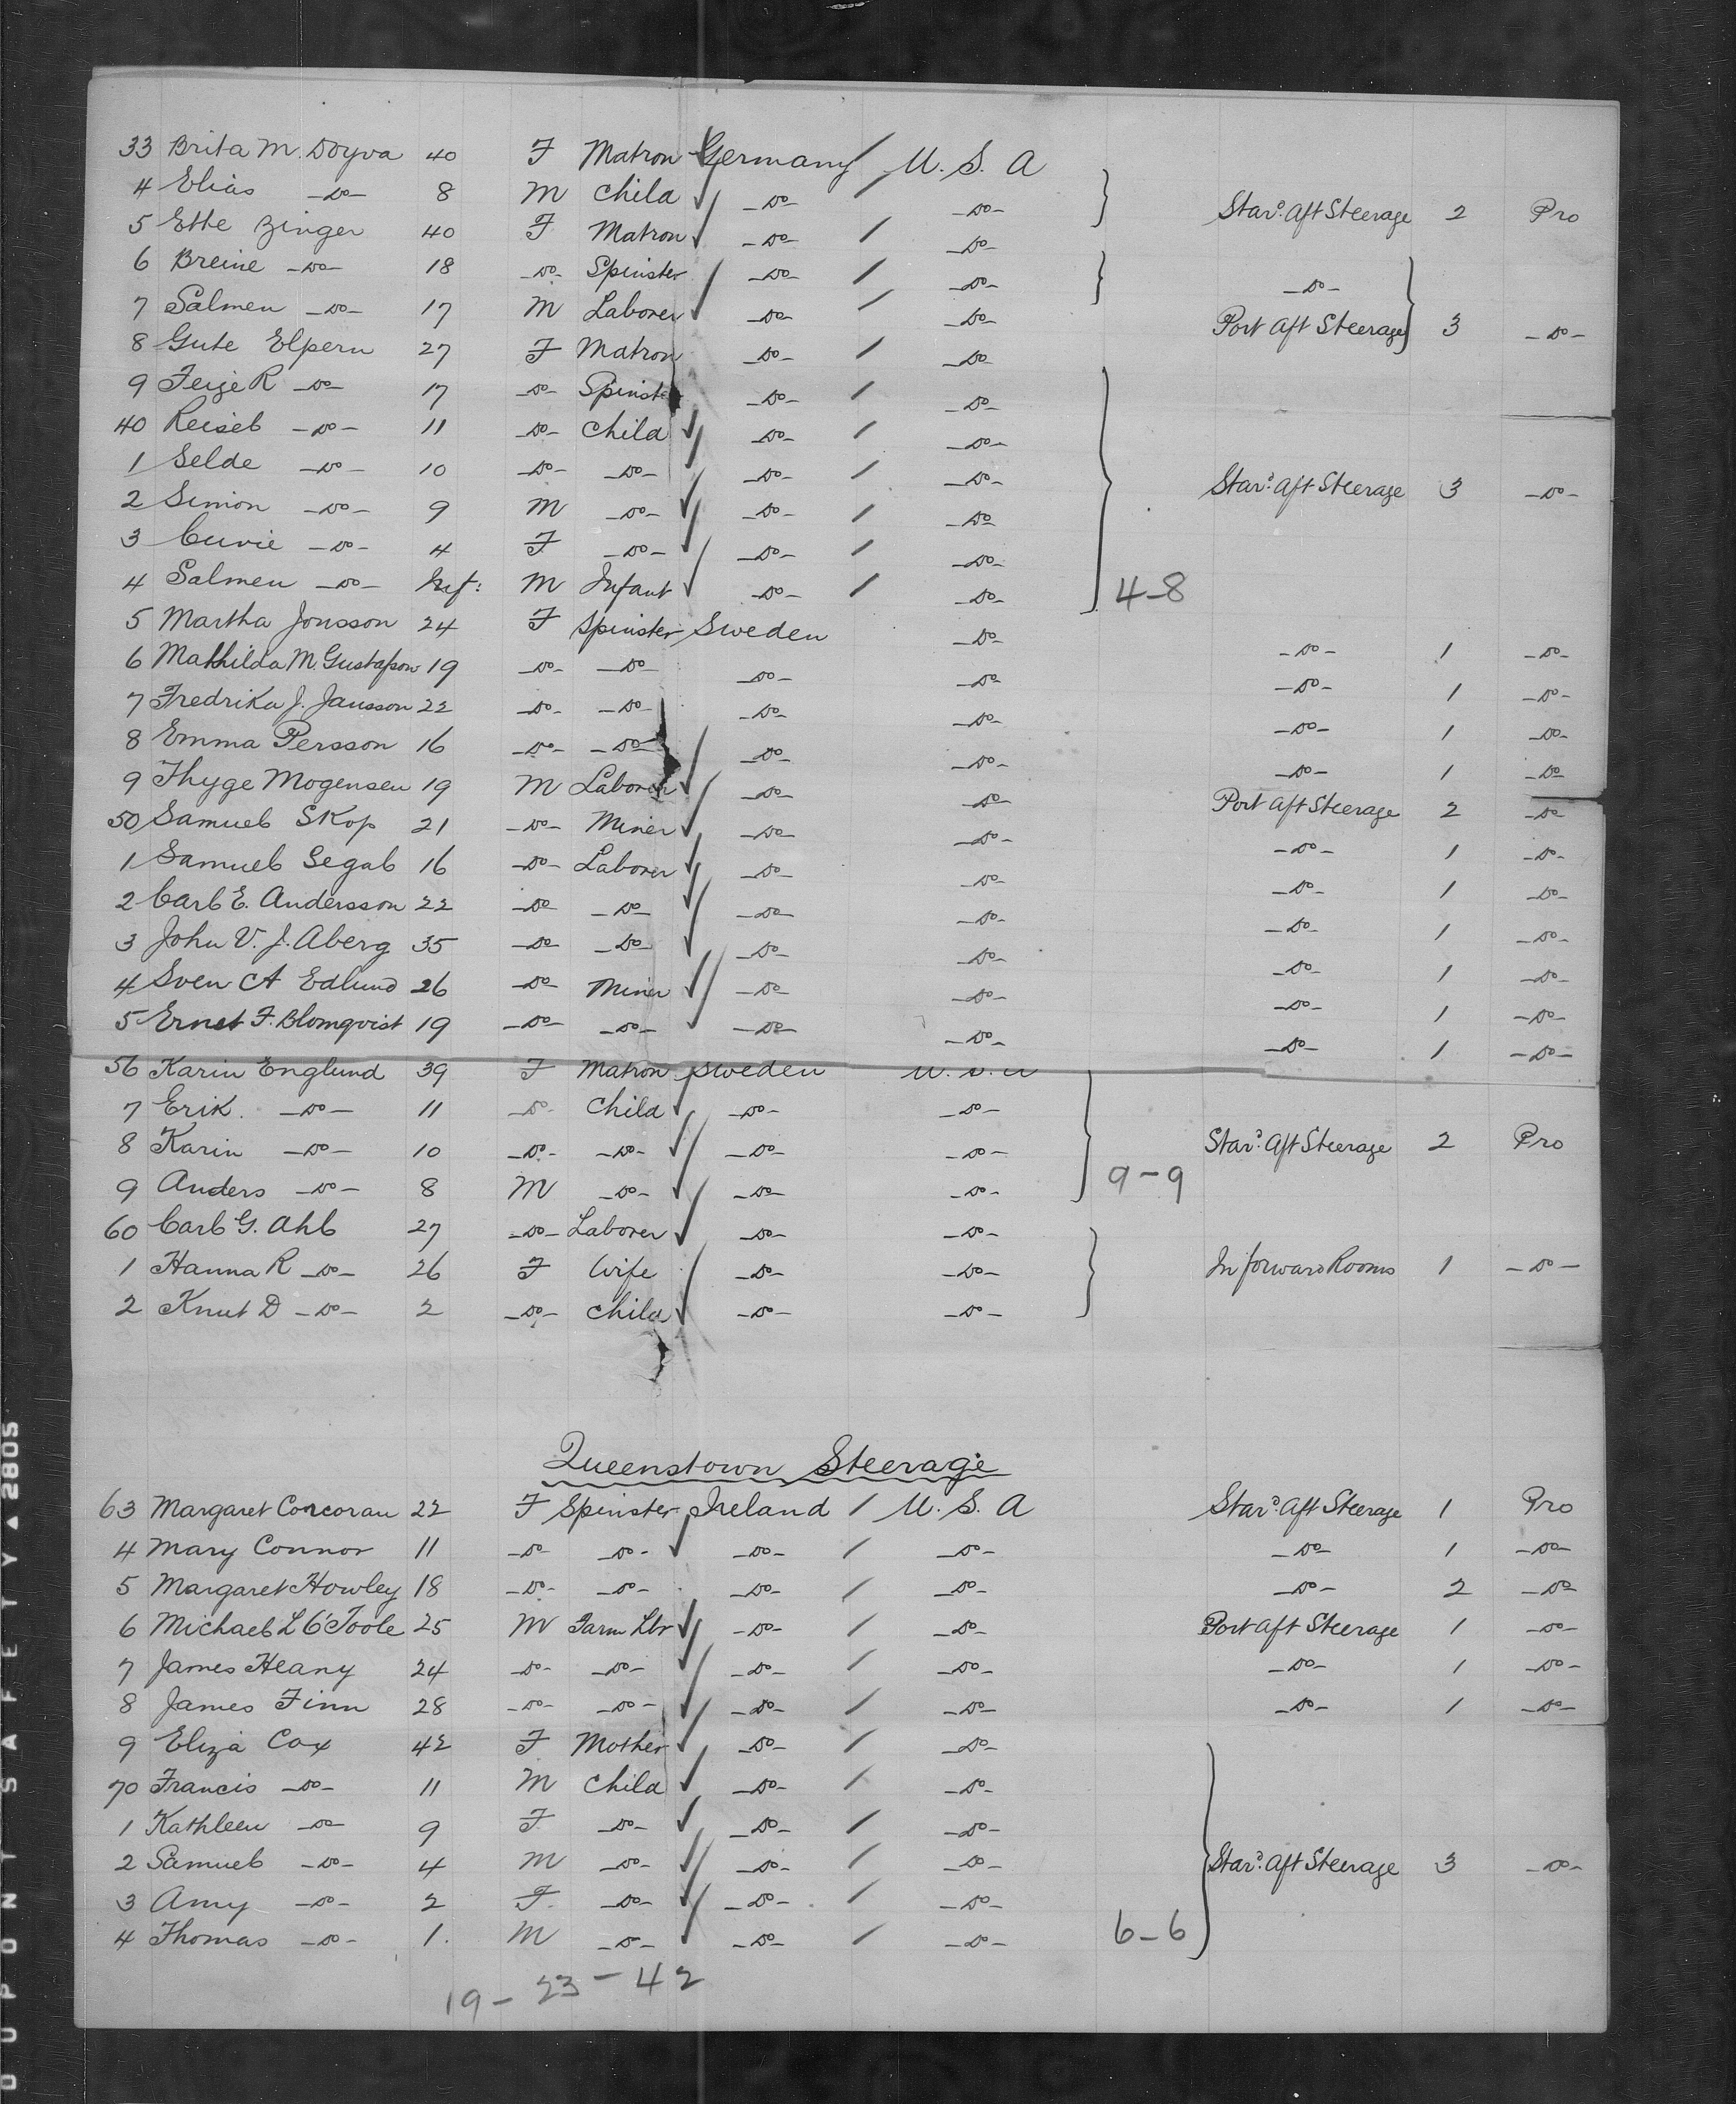 33 Brita M. Doyva 40 F Matron Germany / U. S. A
4 Elias -do- 8 M Child -do- / -do- Star.d Aft Steerage 2 Pro
5 Ette Zinger 40 F Matron -do- / -do-
6 Breine -do- 18 -do- Spinster -do- / -do- -do-
7 Salmen -do- 17 M Laborer -do- / -do- Port Aft Steerage 3 -do-
8 Gute Elpern 27 F Matron -do- / -do-
9 Feige R -do- 17 -do- Spinst -do- / -do-
40 Reisel -do- 11 -do- Child -do- / -do-
1 Selde -do- 10 -do- -do- -do- / -do- Star.d Aft Steerage 3 -do-
2 Simon -do- 9 M -do- -do- / -do-
3 Curie -do- 4 F -do- -do- / -do-
4 Salmen -do- Inf: M Infant -do- / -do- 4-8
5 Martha Jonsson 24 F Spinster Sweden -do- -do- 1 -do-
6 Mathilda M. Gustafson 19 -do- -do- -do- -do- -do- 1 -do-
7 Fredrika J. Jansson 22 -do- -do- -do- -do- -do- 1 -do-
8 Emma Persson 16 -do- -do- -do- -do- -do- 1 -do-
9 Thyge Mogensen 19 M Laborer -do- -do- Port Aft Steerage 2 -do-
50 Samuel Skop 21 -do- Miner -do- -do- -do- 1 -do-
1 Samuel Segal 16 -do- Laborer -do- -do- -do- 1 -do-
2 Carl E. Andersson 22 -do- -do- -do- -do- -do- 1 -do-
3 John V. J. Aberg 35 -do- -do- -do- -do- -do- 1 -do-
4 Sven A Edlund 26 -do- Miner -do- -do- -do- 1 -do-
5 Ernst F. Blomqvist 19 -do- -do- -do- -do- -do- 1 -do-
56 Karin Englund 39 F Matron Sweden U. S. A
7 Erik. -do- 11 -do- Child -do- -do-
8 Karin -do- 10 -do- -do- -do- -do- Star.d Aft Steerage 2 Pro
9 Anders -do- 8 M -do- -do- -do- 9-9
60 Carl G. Ahl 27 -do- Laborer -do- -do-
1 Hanna R -do- 26 F Wife -do- -do- In forward Rooms 1 -do-
2 Knut D -do- 2 -do- Child -do- -do-
Queenstown Steerage
63 Margaret Corcoran 22 F Spinster Ireland / U. S. A Star.d Aft Steerage 1 Pro
4 Mary Connor 11 -do- -do- -do- / -do- -do- 1 -do-
5 Margaret Howley 18 -do- -do- -do- / -do- -do- 2 -do-
6 Michael L O'Toole 25 M Farm Lbr -do- / -do- Port Aft Steerage 1 -do-
7 James Heany 24 -do- -do- -do- / -do- -do- 1 -do-
8 James Finn 28 -do- -do- -do- / -do- -do- 1 -do-
9 Eliza Cox 42 F Mother -do- / -do-
70 Francis -do- 11 M Child -do- / -do-
1 Kathleen -do- 9 F -do- -do- / -do-
2 Samuel -do- 4 M -do- -do- / -do- Star.d Aft Steerage 3 -do-
3 Amy -do- 2 F -do- -do- / -do-
4 Thomas -do- 1. M -do- -do- / -do- 6-6
19-23-42
DUPONT SAFETY ▲ 2805